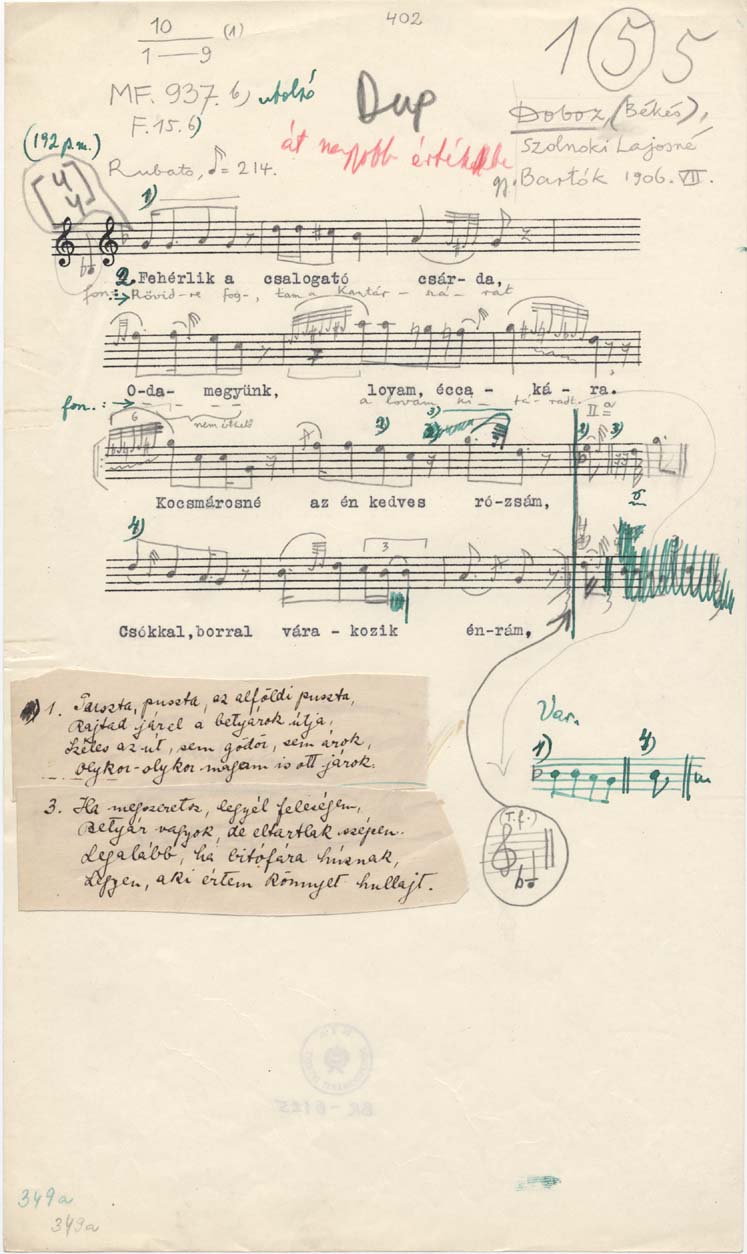 402
10 (1)
1—9
155
MF. 937. b) utolsó
F. 15. b)
Dup
Doboz (Békés),
Szolnoki Lajosné
gy. Bartók 1906. VII.
át nagyobb értékekbe
(192 p.m.)
Rubato, ♪= 214.
[4 4]
1)
2. Fehérlik a csalogató csár-da,
fon.: → Rövid-re fog-, tam a kantár-
O-da- megyünk, lovam, écca - ká - ra.
fon.: → a lovam ki - fá - radt.
II.a
6
nem kitéve
2) 3) 2) 3)
Kocsmárosné az én kedves ró-zsám,
4)
3
Csókkal,borral vára - kozik én-rám,
1. Puszta, puszta, az alföldi puszta,
Rajtad járel a betyárok útja,
Széles az út, sem gödör, sem árok,
Olykor-olykor magam is ott járok.
Var.
1) 4)
3. Ha megszeretsz, legyél feleségem,
Betyár vagyok, de eltartlak szépen.
Legalább, ha bitófára húznak,
Legyen, aki értem könnyet hullajt.
(T.f.)
BR-6125
349a
349a